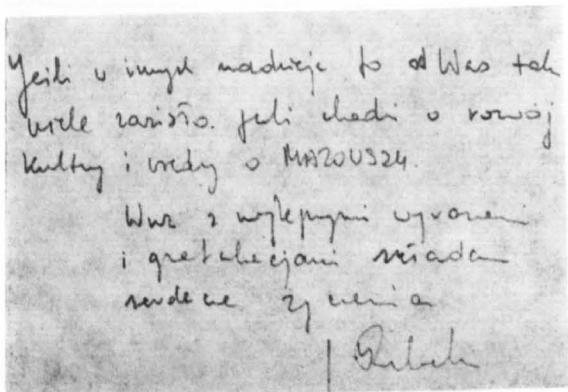 Jeśli w innych nadzieje to od Was tak
wiele zależało. Jeśli chodzi o rozwój
Kultury i wiedzy o MAZOWSZU.
Wraz z najlepszymi wyrazami
i gratulacjami składam
serdeczne życzenia